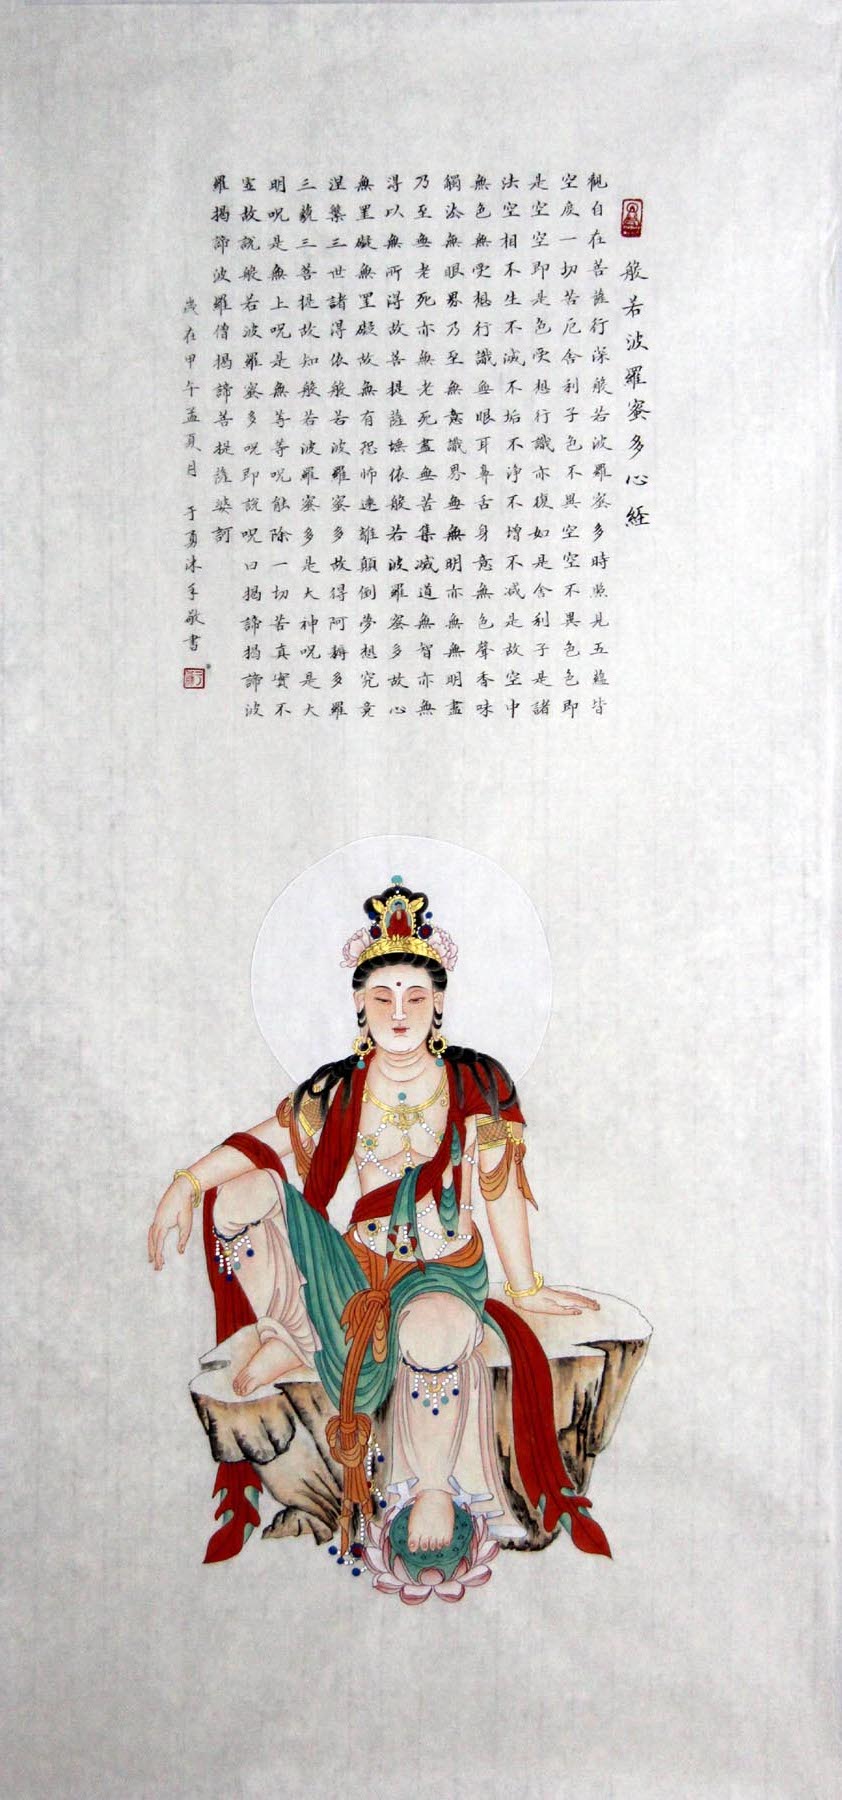 般若波羅蜜多心経
觀自在菩薩行深般若波羅蜜多時照見五蘊皆
空度一切苦厄舍利子色不異空空不異色色即
是空空即是色受想行識亦復如是舍利子是諸
法空相不生不滅不垢不淨不增不減是故空中
無色無受想行識無眼耳鼻舌身意無色聲香味
觸法無眼界乃至無意識界無無明亦無無明盡
乃至無老死亦無老死盡無苦集滅道無智亦無
得以無所得故菩提薩埵依般若波羅蜜多故心
無罣礙無罣礙故無有恐怖遠離顛倒夢想究竟
涅槃三世諸佛依般若波羅蜜多故得阿耨多羅
三藐三菩提故知般若波羅蜜多是大神呪是大
明呪是無上呪是無等等呪能除一切苦真實不
虛故說般若波羅蜜多呪即說呪曰揭諦揭諦波
羅揭諦波羅僧揭諦菩提薩婆訶
歲在甲午孟夏月 于勇沐手敬書